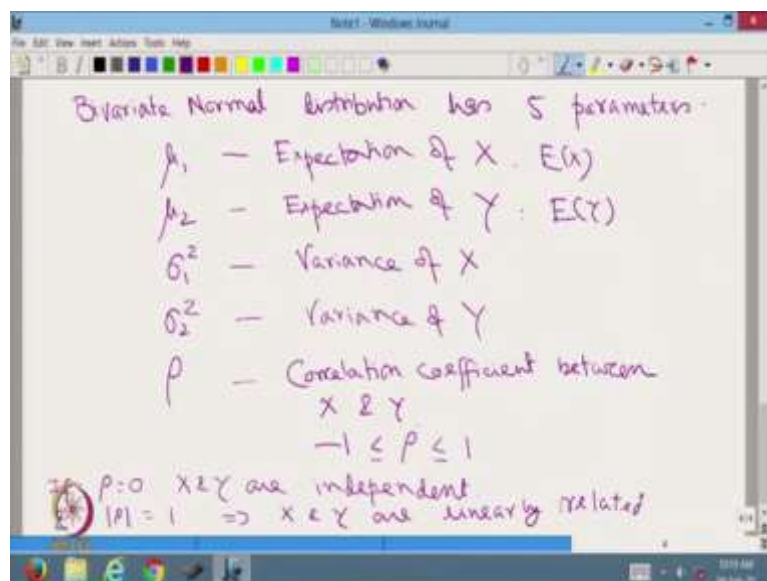 Note1 - Windows Journal
File Edit View Insert Actions Tools Help
Bivariate Normal distribution has 5 parameters.
μ₁ — Expectation of X. E(X)
μ₂ — Expectation of Y: E(Y)
σ₁² — Variance of X
σ₂² — Variance of Y
ρ — Correlation coefficient between
X & Y
-1 ≤ ρ ≤ 1
If ρ=0 X & Y are independent
|ρ| = 1 => X & Y are linearly related